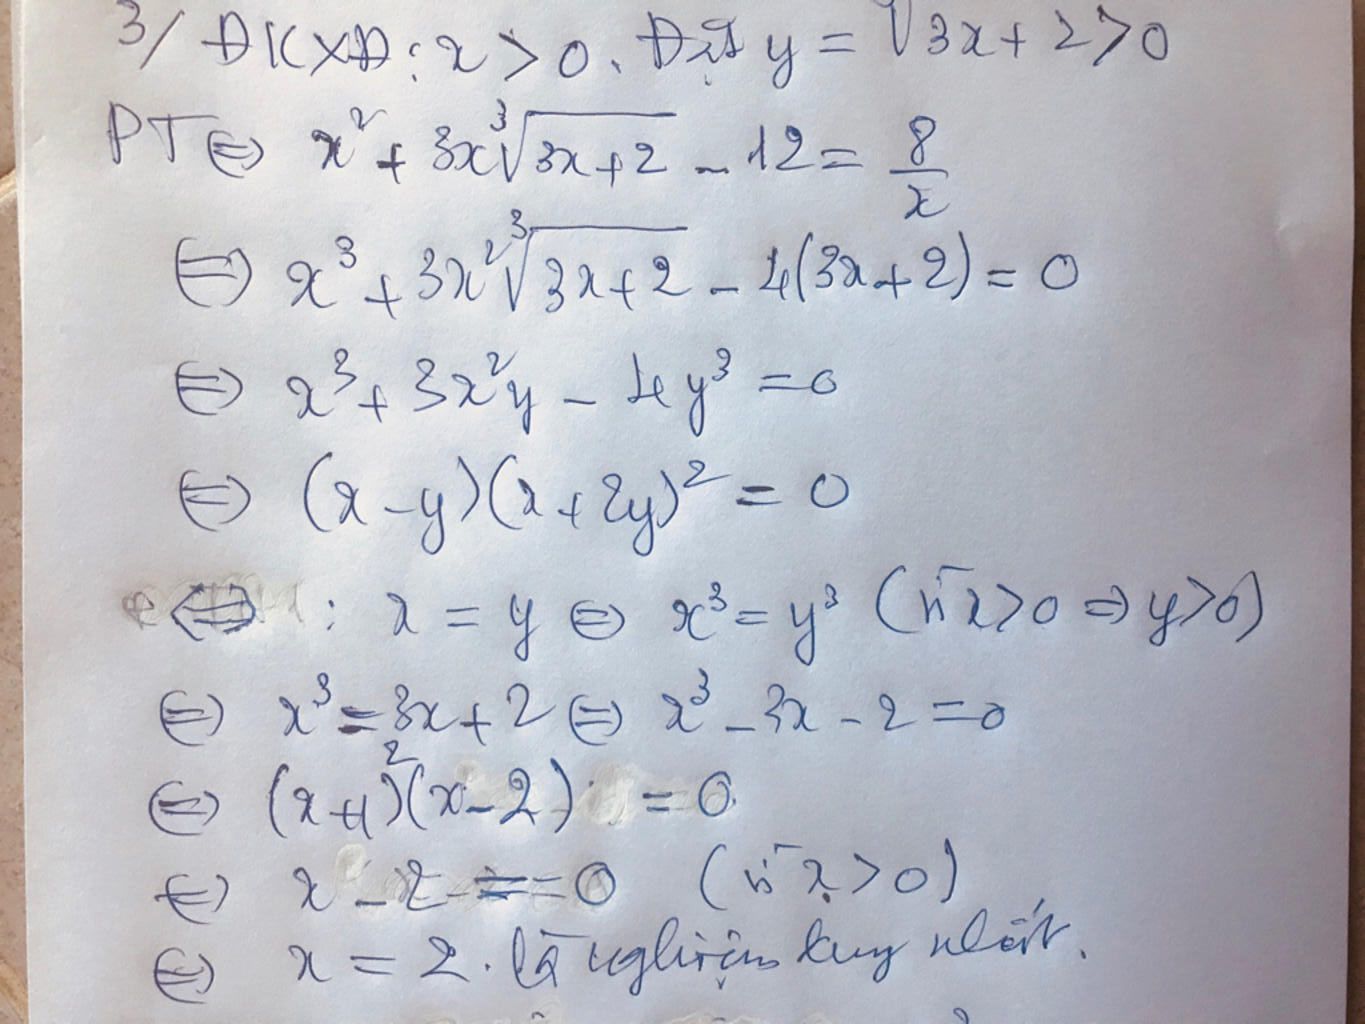 3/ ĐKXĐ: x > 0. Đặt y = √3x + 2 > 0
PT ⇔ x² + 3x∛(3x+2) - 12 = 8/x
⇔ x³ + 3x²∛(3x+2) - 4(3x+2) = 0
⇔ x³ + 3x²y - 4y³ = 0
⇔ (x-y)(x+2y)² = 0
⇔ : x = y ⇔ x³ = y³ (vì x>0 ⇒ y>0)
⇔ x³ = 3x+2 ⇔ x³ - 3x - 2 = 0
⇔ (x+1)²(x-2) = 0
⇔ x - 2 = 0 (vì x > 0)
⇔ x = 2. là nghiệm duy nhất.